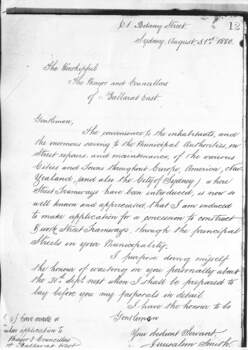 61 Botany Street.
Sydney, August 31st 1880.
The Worshipful
The Mayor and Councillors
of Ballarat East.
Gentlemen,
The convenience to the inhabitants, and
the enormous saving to the Municipal Authorities, on
Street repairs and maintenance of the various
Cities and Towns throughout Europe, America, New
Zealand, and also the City of Sydney, where
Street Tramways have been introduced, is now so
well known and appreciated, that I am induced
to make application for a concession to construct
Street Tramways, through the principal
Streets in your Municipality.
I purpose doing myself
the honour of waiting on you personally about
the 30th Sept next when I shall be prepared to
lay before you my proposals in detail.
I have the honour to be
Gentlemen
Your obedient Servant,
Smith.
I have made a
application to
Mayor & Councillors
of Ballarat West